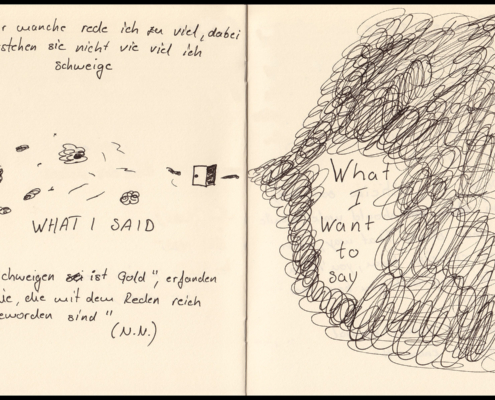 r manche rede ich zu viel, dabei
stehen sie nicht vie viel ich
schweige
WHAT I SAID
chweigen ist Gold", erfanden
ie, die mit dem Reden reich
eworden sind"
(N.N.)
What
I
want
to
say